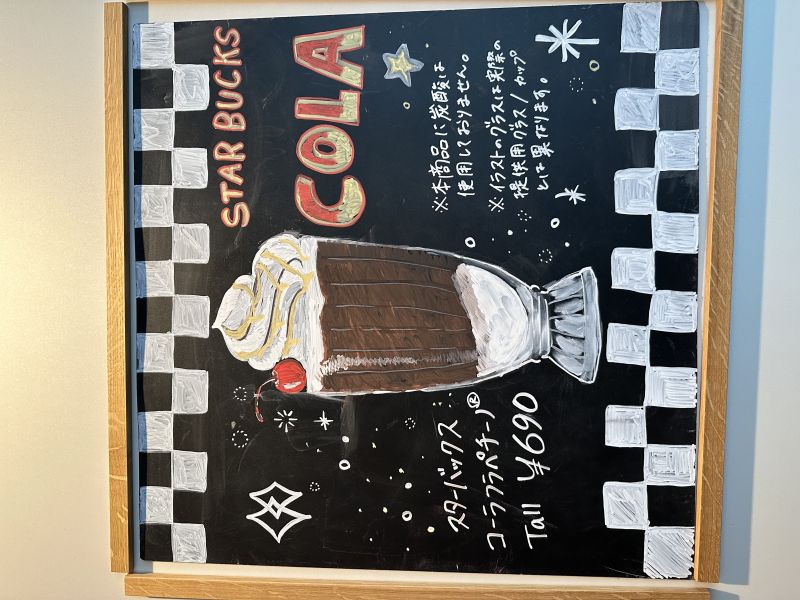 STAR BUCKS
COLA
※本商品に炭酸は
使用しておりません。
※イラストのグラスは実際の
提供用グラス/カップ
とは異なります。
スターバックス
コーラフラペチーノ®
Tall ¥690